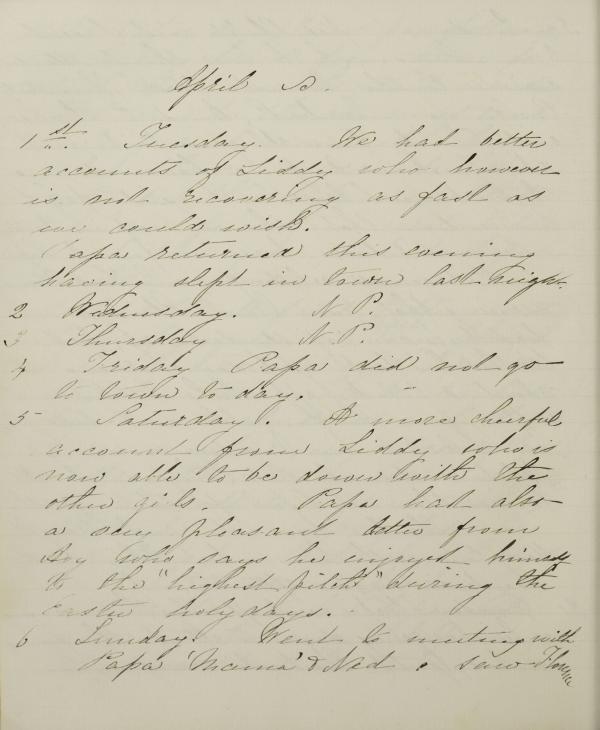 April
1st. Tuesday. We had better
accounts of Liddy who however
is not recovering as fast as
we could wish.
Papa returned this evening
having slept in town last night.
2 Wednesday. N P.
3 Thursday N. P.
4 Friday Papa did not go
to town to day.
5 Saturday. A more cheerful
account from Liddy who is
now able to be down with the
other girls. Papa had also
a very pleasant letter from
who says he enjoyed himself
to the "highest pitch" during the
Easter holydays.
6 Sunday. Went to meeting with
Papa 'Mama' & Ned & saw Florence